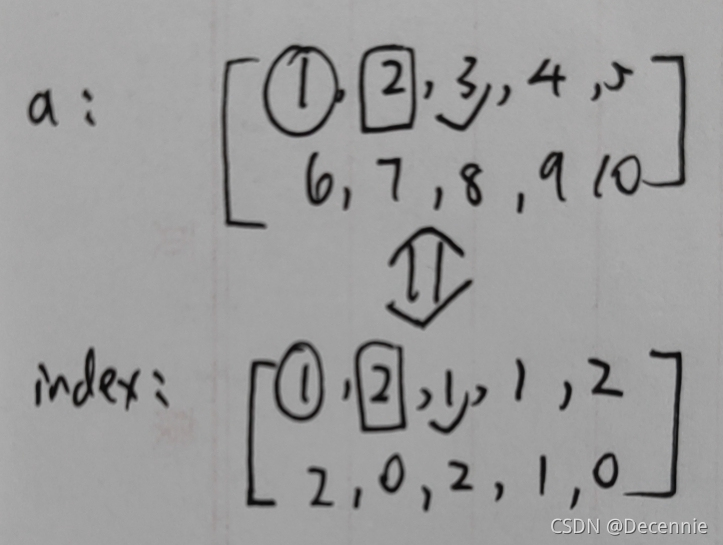 a: [1, 2, 3, 4, 5
6, 7, 8, 9 10]
index: [1, 2, 1, 1, 2
2, 0, 2, 1, 0]
CSDN @Decennie